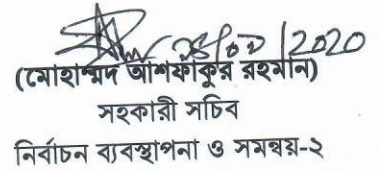 /2020
(মোহাম্মদ আশফাকুর রহমান)
সহকারী সচিব
নির্বাচন ব্যবস্থাপনা ও সমন্বয়-২